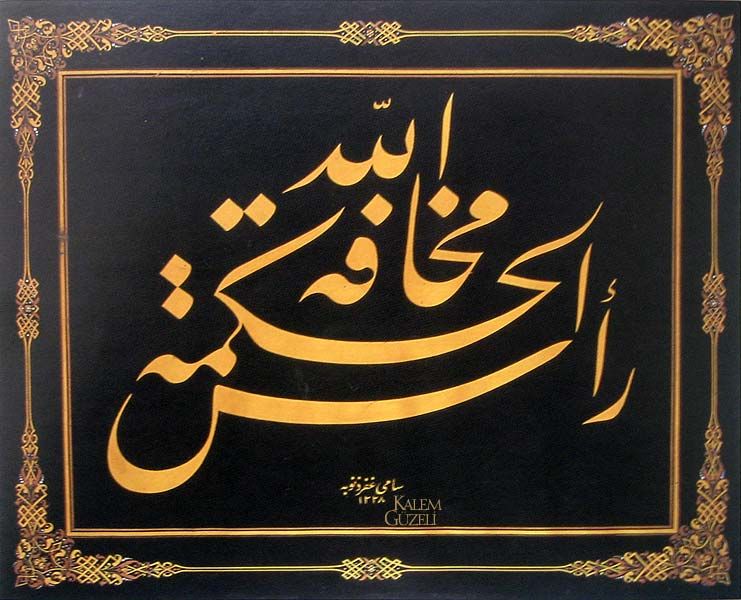 رأس الحكمة مخافة الله
سامي غفر ذنوبه
١٣٢٨
KALEM
GÜZELİ